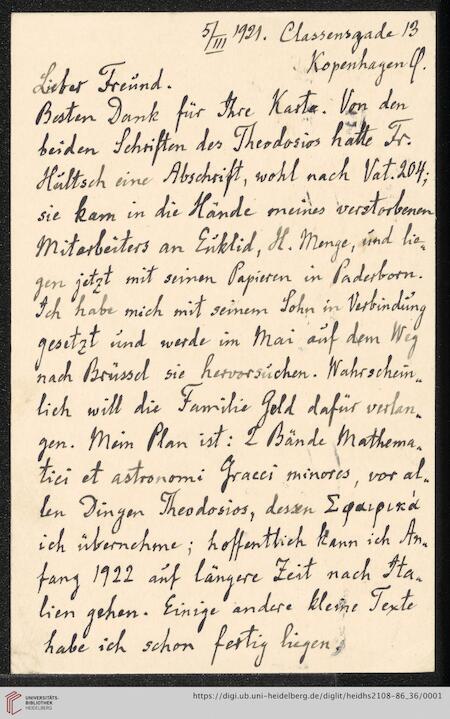 5/III 1921. Classensgade 13
Kopenhagen Ø.
Lieber Freund.
Besten Dank für Ihre Karte. Von den
beiden Schriften des Theodosios hatte Fr.
Hultsch eine Abschrift, wohl nach Vat. 204;
sie kam in die Hände meines verstorbenen
Mitarbeiters an Euklid, H. Menge, und lie-
gen jetzt mit seinen Papieren in Paderborn.
Ich habe mich mit seinem Sohn in Verbindung
gesetzt und werde im Mai auf dem Weg
nach Brüssel sie hervorsuchen. Wahrschein-
lich will die Familie Geld dafür verlan-
gen. Mein Plan ist: 2 Bände Mathema-
tici et astronomi Graeci minores, vor al-
len Dingen Theodosios, dessen Σφαιρικά
ich übernehme; hoffentlich kann ich An-
fang 1922 auf längere Zeit nach Ita-
lien gehen. Einige andere kleine Texte
habe ich schon fertig liegen,
UNIVERSITÄTS-
BIBLIOTHEK
HEIDELBERG
https://digi.ub.uni-heidelberg.de/diglit/heidhs2108-86_36/0001